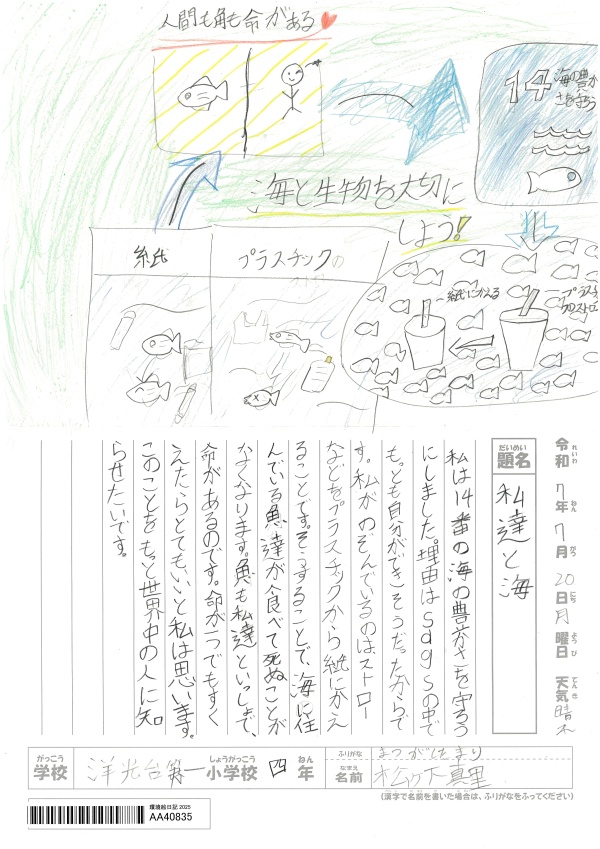 人間も魚も命がある
14 海の豊か
さを守ろう
海と生物を大切に
しよう!
紙
プラスチック
紙にかえる
プラスチ
令和7年7月20日月曜日 天気晴れ
れいわ ねん がつ にち ようび てんき
だいめい
題名 私達と海
私は14番の海の豊かさを守ろう
にしました。理由はsdgsの中で
もっとも自分ができそうだったからで
す。私がのぞんでいるのはストロー
などをプラスチックから紙にかえ
ることです。そうすることで、海に住
んでいる魚達が食べて死ぬことが
なくなります。魚も私達といっしょで、
命があるのです。命が一つでもすく
えたらとてもいいと私は思います。
このことをもっと世界中の人に知
らせたいです。
がっこう しょうがっこう ねん
学校 洋光台第一小学校 四年
ふりがな まつがした まり
なまえ
名前 松ヶ下真里
(漢字で名前を書いた場合は、ふりがなをふってください)
環境絵日記 2025
AA40835